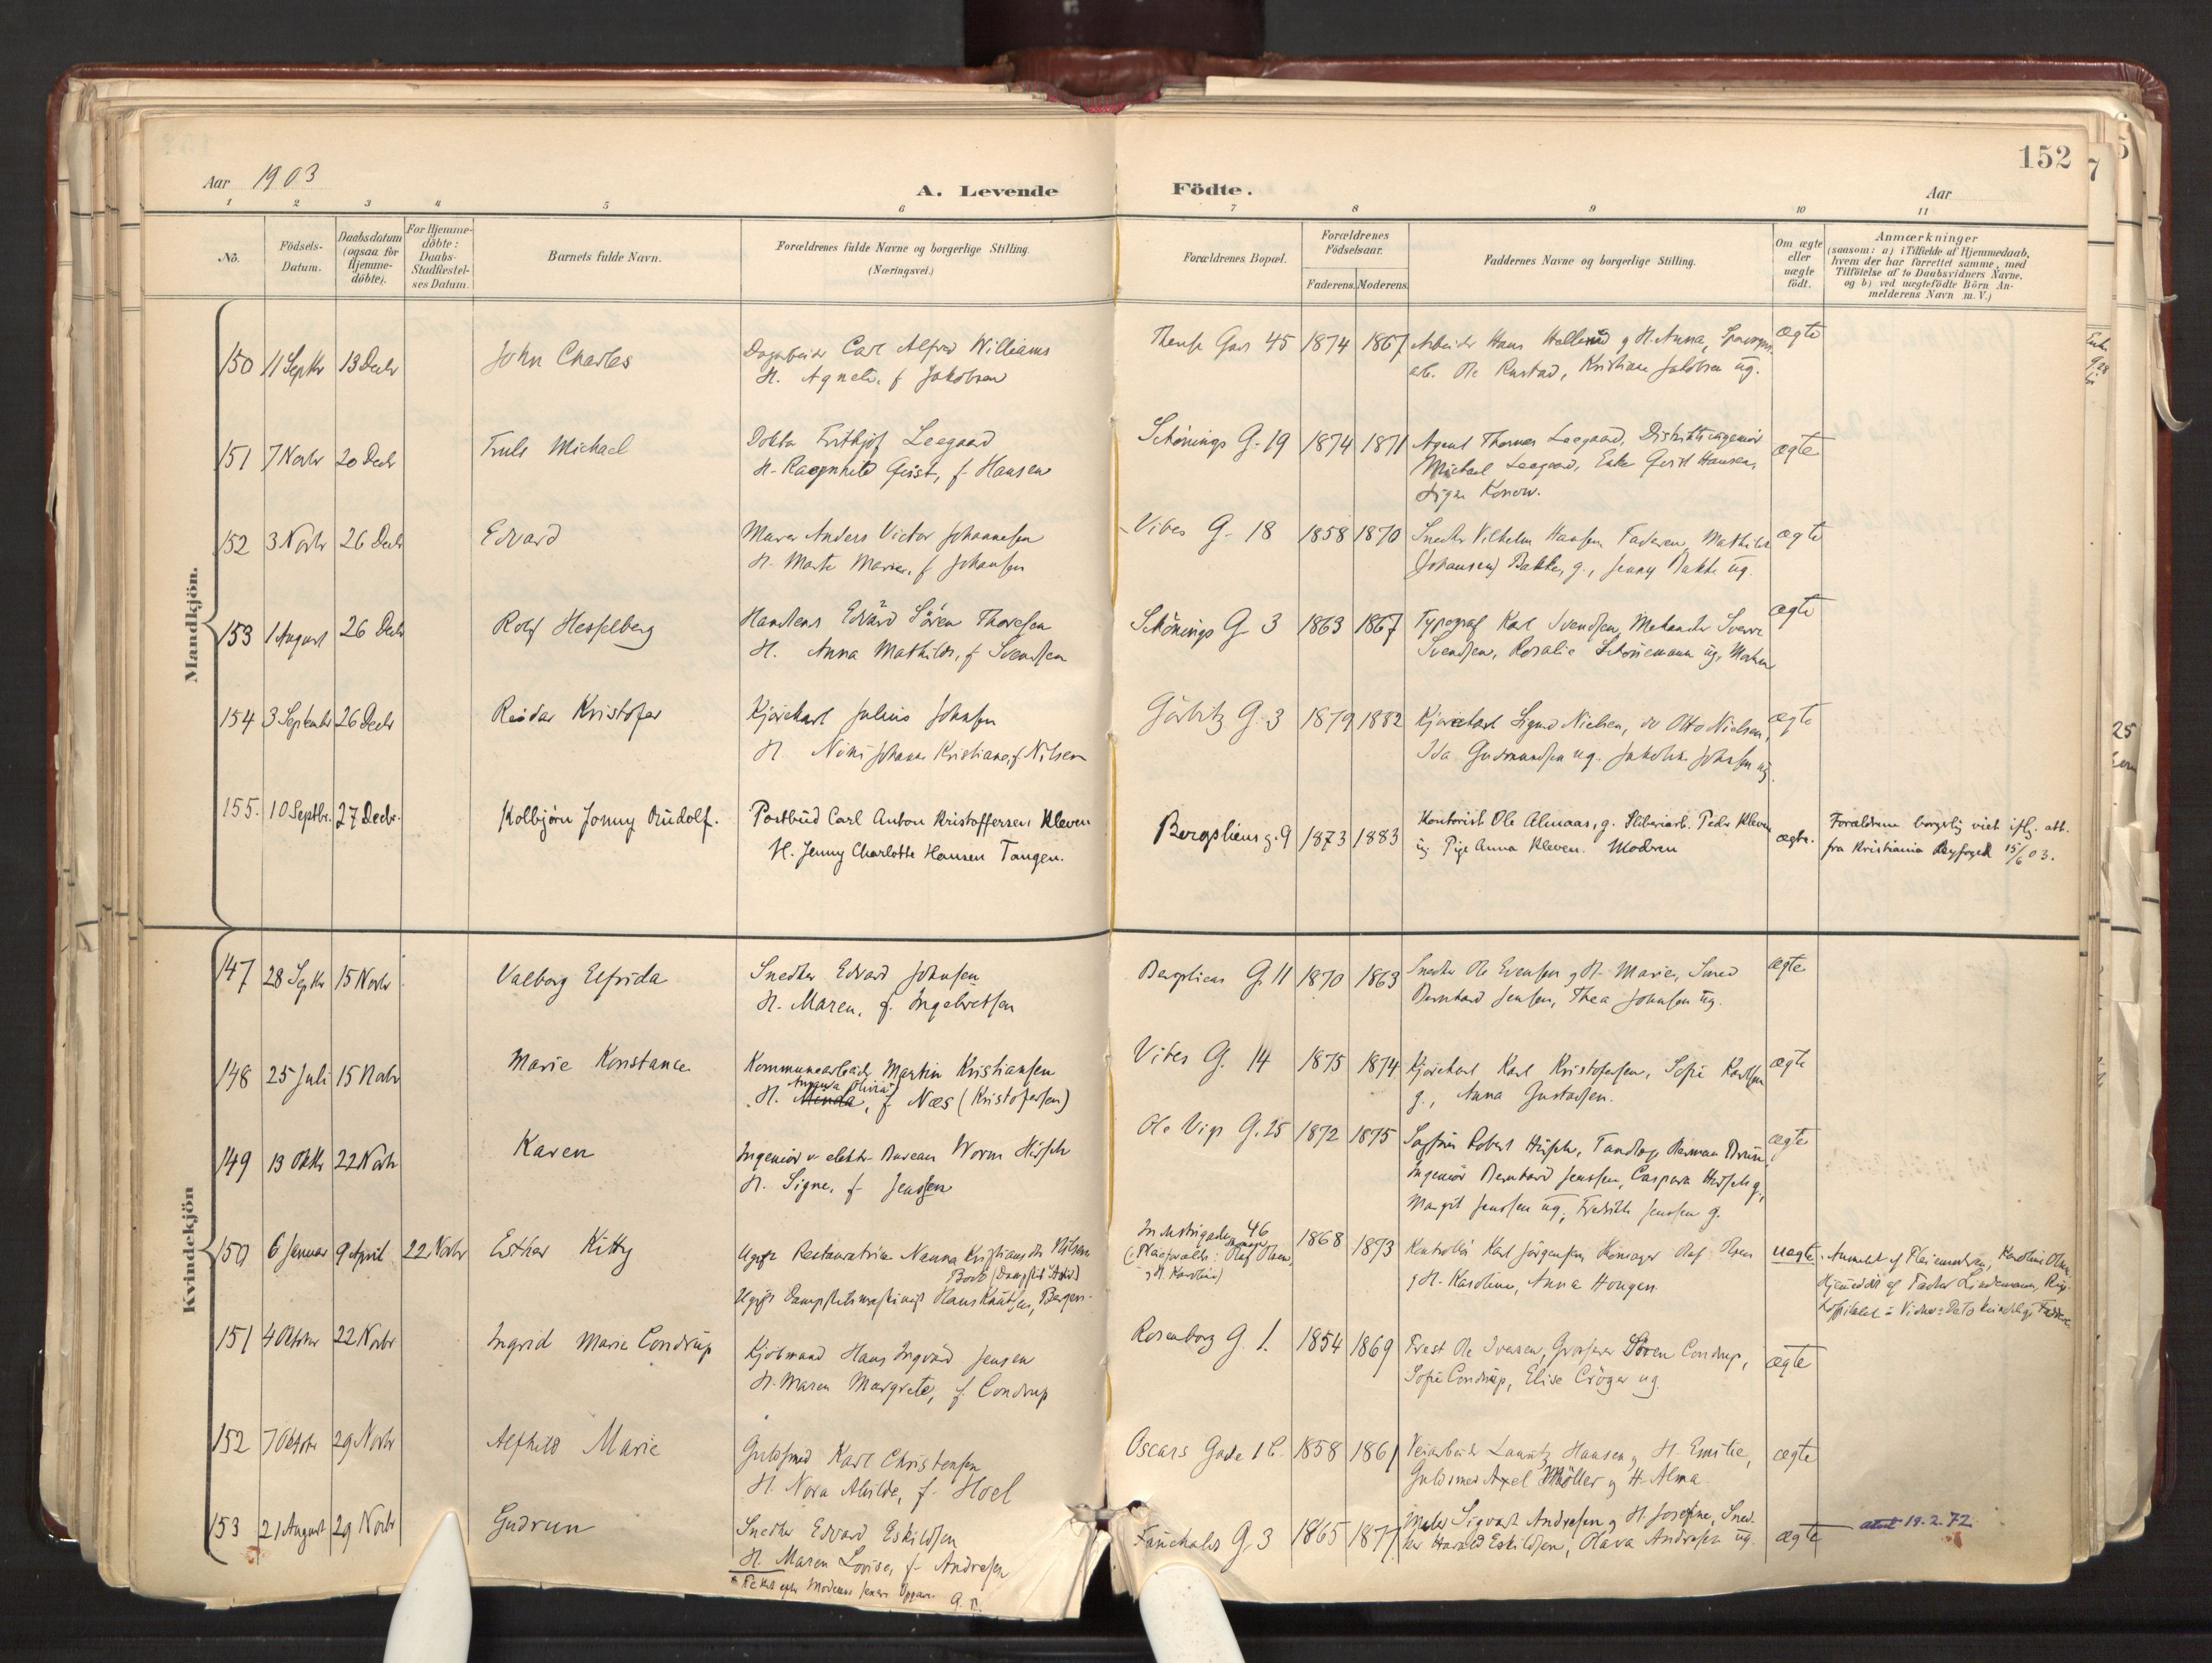 152
Aar 1903
A. Levende Födte.
Aar
1 2 3 4 5 6 7 8 9 10 11
No.
Födsels-
Datum.
Daabsdatum
(ogsaa for
Hjemme-
døbte).
For Hjemme-
døbte:
Daabs-
Stadfæstel-
ses Datum.
Barnets fulde Navn.
Forældrenes fulde Navne og borgerlige Stilling.
(Næringsvei.)
Forældrenes Bopæl.
Forældrenes
Födselsaar.
Faderens. Moderens.
Faddernes Navne og borgerlige Stilling.
Om ægte
eller
uægte
født.
Anmærkninger
(saasom: a) i Tilfælde af Hjemmedaab,
hvem der har forrettet samme, med
Tilföielse af to Daabsvidners Navne,
og b) ved uægtefödte Börn An-
melderens Navn m. V.)
Mandkjön.
150 11 Septbr 13 Decbr John Charles
Carl Alfred Williams
H. Agnete, f. Jakobsen
45 1874 1867
Arbeider Hans g H. Anna,
Ole Rustad, Kristiane Jakobsen ug.
ægte
151 7 Novbr 20 Decbr Truls Michael
Doktor Frithjof Leegaard
H. Ragnhild Qvist, f. Hansen
Schönings G. 19 1874 1871
Agent Thomas Leegaard, Distriktsingeniør
Michael Leegaard, Enke Qvist Hansen,
Konow.
ægte
152 3 Novbr 26 Decbr Edvard
Murer Anders Victor Johannesen
H. Marte Marie, f. Johansen
Vibes G. 18 1858 1870
Snedker Vilhelm Hansen, Faderen, Mathilde
(Johansen) Bakke, g., Jenny Bakke ug.
ægte
153 1 August 26 Decbr Rolf Hesselberg
Edvard Sören Thoresen
H. Anna Mathilde, f. Svendsen
Schönings G 3 1863 1867
Typograf Karl Svendsen, Sverre
Svendsen, Rosalie ug,
ægte
154 3 Septembr 26 Decbr Reidar Kristofer
Kjørekarl Julius Johnsen
H. Johanne Kristiane, f. Nilsen
Görbitz G. 3 1879 1882
Kjørekarl Sigurd Nielsen, do Otto Nielsen,
Ida Gudmundsen ug. Jakobine Johnsen ug.
ægte
155. 10 Septbr. 27 Decbr. Kolbjörn Jonny Rudolf.
Postbud Carl Anton Kristoffersen Kleven
H. Jenny Charlotte Hansen Tangen.
Bergsliens g. 9 1873 1883
Kontorist Ole Almaas, g. Sliberiarb. Peder Kleven
ug Pige Anna Kleven. Moderen
ægte.
Forældrene borgerlig viet iflg. att.
fra Kristiania Byfoged 15/6 03.
Kvindekjön
147 28 Septbr 15 Novbr Valborg Elfrida
Snedker Edvard Johnsen
H. Maren, f. Ingebretsen
Bergsliens G 11 1870 1863
Snedker Ole Evensen g H. Marie, Smed
Bernhard Jensen, Thea Johnsen ug.
ægte
148 25 Juli 15 Novbr Marie Konstance
Kommunearbeider Martin Kristiansen
H. Olivia, f. Næs (Kristofersen)
Vibes G. 14 1875 1874
Kjørekarl Karl Kristofersen, Sofie Karlsen
g., Anna Gustavsen.
ægte
149 13 Oktbr 22 Novbr Karen
Ingeniør v elektr. Bureau Worm Hirsch
H. Signe, f. Jenssen
Ole Vigs G. 25 1872 1875
Robert Hirsch, Tandlæge Herman Bruun,
Ingeniör Bernhard Jenssen, Caspara Hirsch g.,
Margit Jenssen ug, Fredrikke Jenssen g.
ægte
150 6 Januar 9 April 22 Novbr Esther Kitty
Ugift Nanna Kristiansdtr Nilsen
Ugift Dampskibsmaskinist Hans Knutsen, Bergen.
Industrigaden 46
(Pleieforældre: Olaf Olsen
g H. Karoline)
1868 1873
Kontrollør Karl Jörgensen, Olaf Olsen
g H. Karoline, Anna Hongen
uægte
Anmeldt af Pleiemoderen, Karoline Olsen.
Hjemmedöbt af Pastor Lindemann, Rigs-
hospitalet.
151 4 Oktober 22 Novbr Ingrid Marie Condrup
Kjöbmand Hans Ingvard Jensen
H. Maren Margrete, f. Condrup
Rosenborg G. 1. 1854 1869
Ole Iversen, Grosserer Sören Condrup,
Sofie Condrup, Elise Cröger ug.
ægte
152 7 Oktober 29 Novbr Alfhild Marie
Guldsmed Karl Christensen
H. Nora Alvilde, f. Hoel
Oscars Gade 1 b. 1858 1861
Veiarbeider Lauritz Hansen g H. Emilie,
Guldsmed Axel Möller g H. Alma.
ægte
153 21 August 29 Novbr Gudrun
Snedker Edvard Eskildsen
H. Maren Lovise, f. Andresen
Fauchalds G 3 1865 1877
Sigvart Andresen g H. Josefine, Sned-
ker Harald Eskildsen, Olava Andresen ug.
ægte
attest 19.2.72
* Rettet efter Moderens senere Opgave.